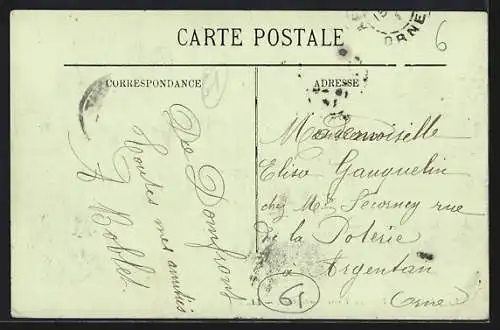 CARTE POSTALE
6
ORNE
CORRESPONDANCE
De Domfront
toutes mes amitiés
A Boblet
ADRESSE
Mademoiselle
Elise Gauquelin
chez Me rue
de la Poterie
a Argentan
Orne
61